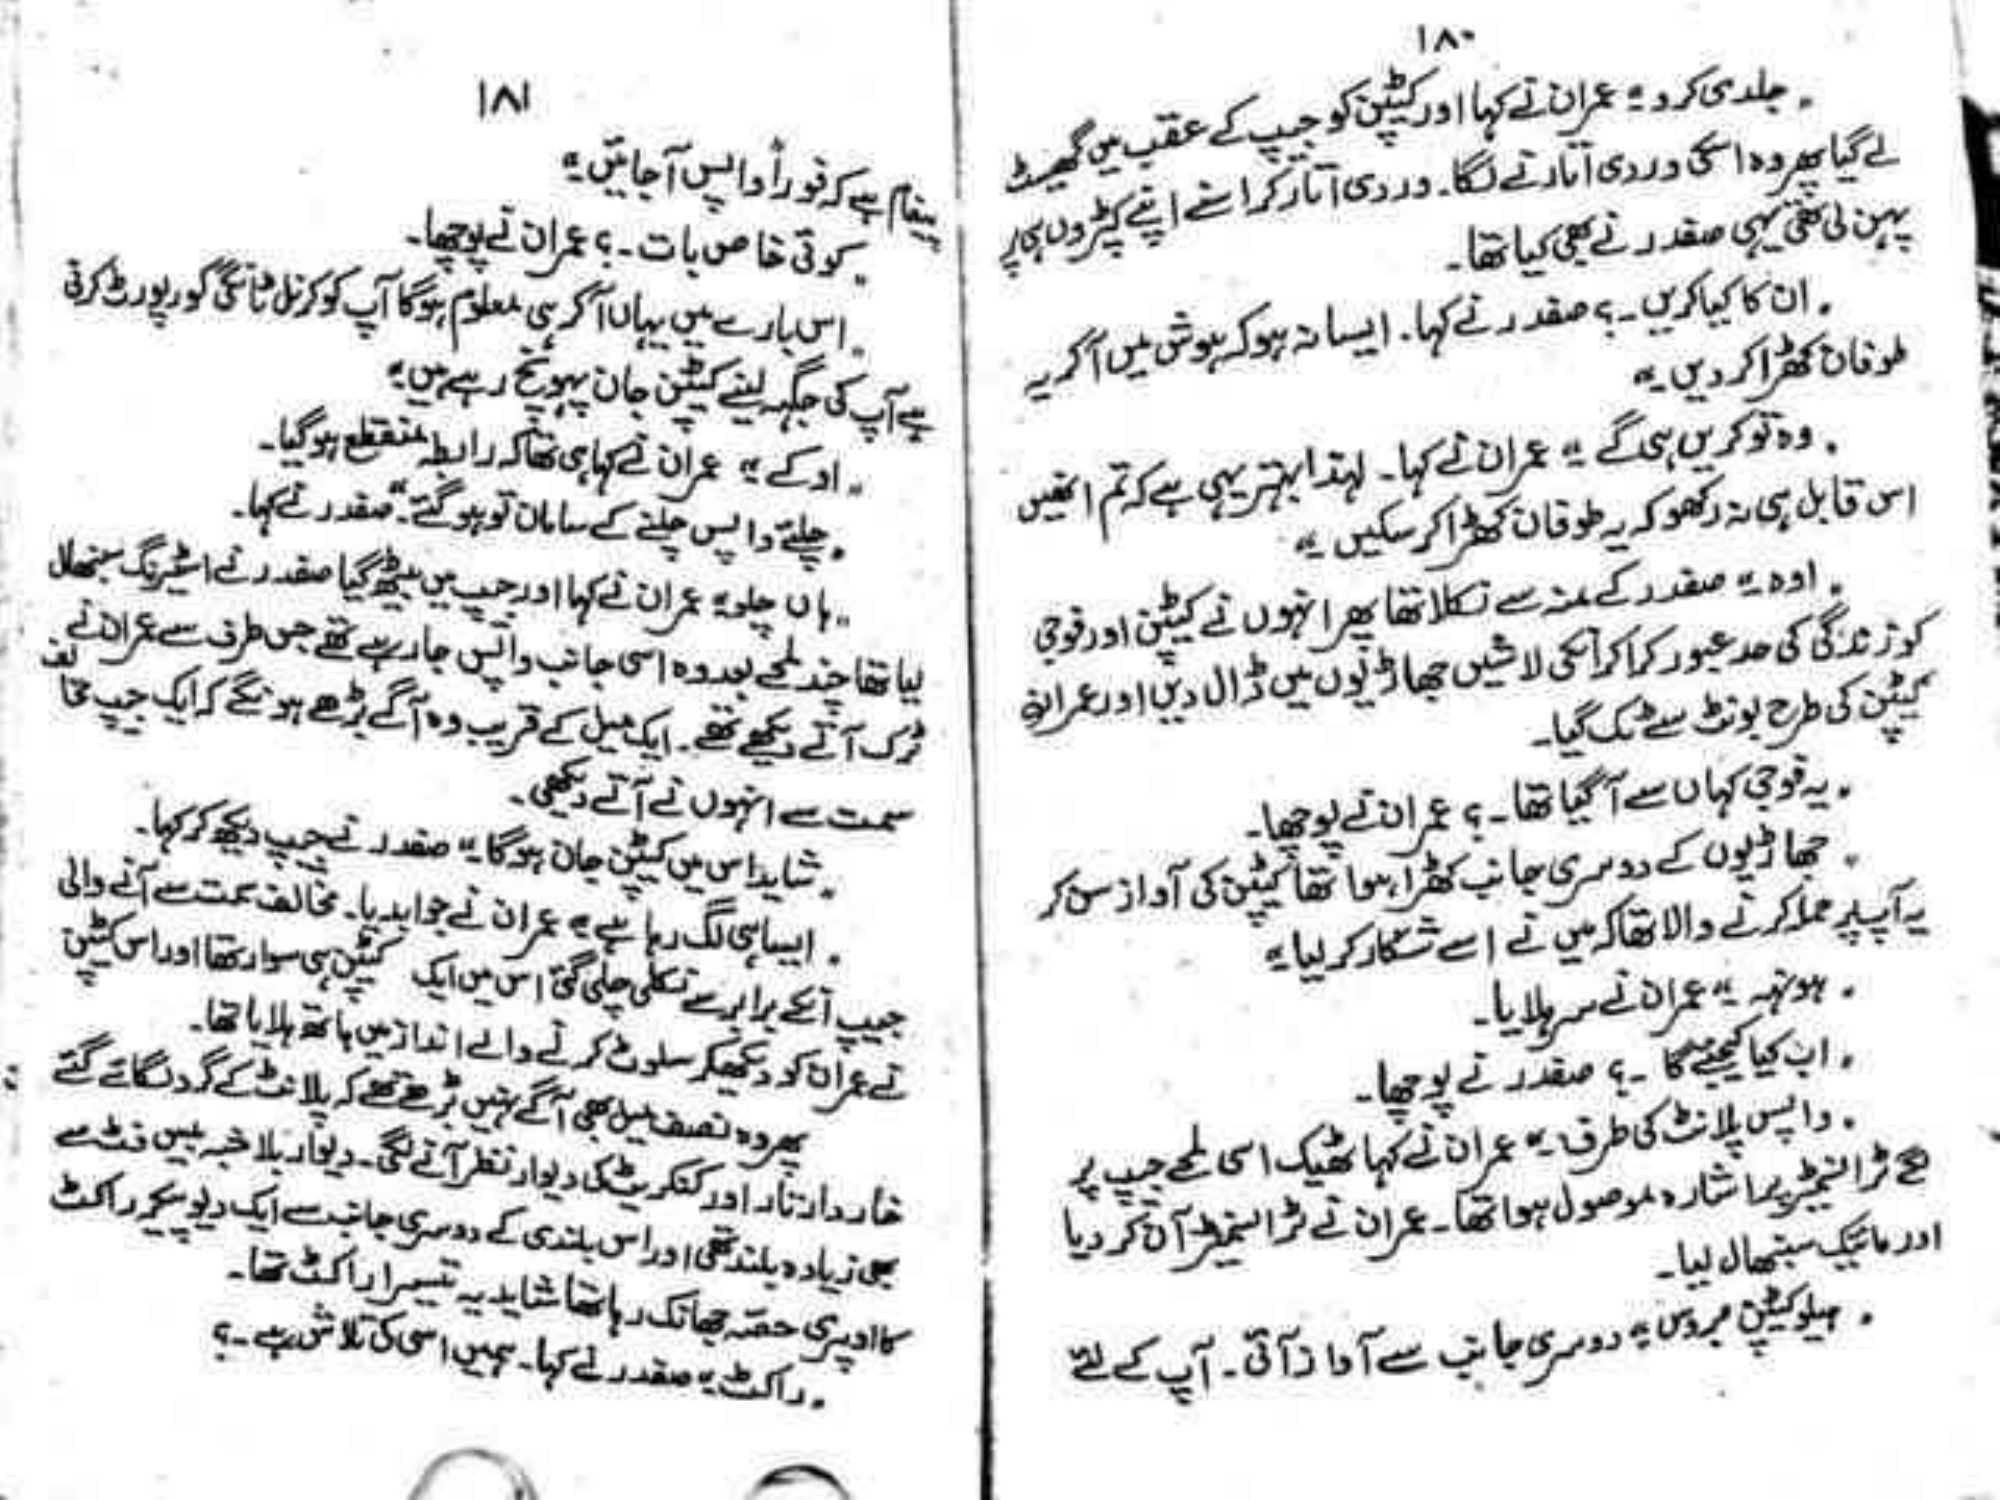 ۱۸۰
"جلدی کرو۔" عمران نے کہا اور کیپٹن کو جیپ کے عقب میں گھسیٹ
لے گیا پھر وہ اسکی وردی اتارنے لگا۔ وردی اتار کر اسنے اپنے کپڑوں ہی پر
پہن لی تھی یہی صفدر نے بھی کیا تھا۔
"ان کا کیا کریں۔؟ صفدر نے کہا۔ ایسا نہ ہو کہ ہوش میں آ کر یہ
طوفان کھڑا کر دیں۔"
"وہ تو کریں ہی گے۔" عمران نے کہا۔ لہٰذا بہتر یہی ہے کہ تم انھیں
اس قابل ہی نہ رکھو کہ یہ طوفان کھڑا کر سکیں۔"
"اوہ۔" صفدر کے منہ سے نکلا تھا پھر انہوں نے کیپٹن اور فوجی
کو زندگی کی حد عبور کرا کر انکی لاشیں جھاڑیوں میں ڈال دیں اور عمران
کیپٹن کی طرح بونٹ سے ٹک گیا۔
"یہ فوجی کہاں سے آ گیا تھا۔؟ عمران نے پوچھا۔
"جھاڑیوں کے دوسری جانب کھڑا ہوا تھا کیپٹن کی آواز سن کر
یہ آپ پر حملہ کرنے والا تھا کہ میں نے اسے شکار کر لیا۔"
"ہونہہ۔" عمران نے سر ہلایا۔
"اب کیا کیجئے گا۔؟ صفدر نے پوچھا۔
"واپس پلانٹ کی طرف۔" عمران نے کہا ٹھیک اسی لمحے جیپ پر
لگے ٹرانسمیٹر پر اشارہ موصول ہوا تھا۔ عمران نے ٹرانسمیٹر آن کر دیا
اور مائیک سنبھال لیا۔
"ہیلو کیپٹن مروس۔" دوسری جانب سے آواز آئی۔ آپ کے لئے
۱۸۱
پیغام ہے کہ فوراً واپس آ جائیں۔"
"کوئی خاص بات۔؟ عمران نے پوچھا۔
"اس بارے میں یہاں آ کر ہی معلوم ہو گا آپ کو کرنل ٹانگی کو رپورٹ کرنی
ہے آپ کی جگہہ لینے کیپٹن جان پہونچ رہے ہیں۔"
"اوکے۔" عمران نے کہا ہی تھا کہ رابطہ منقطع ہو گیا۔
"چلیئے واپس چلنے کے سامان تو ہو گئے۔" صفدر نے کہا۔
"ہاں چلو۔" عمران نے کہا اور جیپ میں بیٹھ گیا صفدر نے اسٹیرنگ سنبھال
لیا تھا چند لمحے بعد وہ اسی جانب واپس جا رہے تھے جس طرف سے عمران نے
ٹرک آتے دیکھے تھے۔ ایک میل کے قریب وہ آگے بڑھے ہونگے کہ ایک جیپ مخالف
سمت سے انہوں نے آتے دیکھی۔
"شاید اس میں کیپٹن جان ہو گا۔" صفدر نے جیپ دیکھ کر کہا۔
"ایسا ہی لگ رہا ہے۔" عمران نے جواب دیا۔ مخالف سمت سے آنے والی
جیپ انکے برابر سے نکلی چلی گئی اس میں ایک کیپٹن ہی سوار تھا اور اس کیپٹن
نے عمران کو دیکھکر سلوٹ کرنے والے انداز میں ہاتھ ہلایا تھا۔
پھر وہ نصف میل بھی آگے نہیں بڑھے تھے کہ پلانٹ کے گرد لگائے گئے
خاردار تار اور کنکریٹ کی دیوار نظر آنے لگی۔ دیوار بلا شبہ بیس فٹ سے
بھی زیادہ بلند تھی اور اس بلندی کے دوسری جانب سے ایک دیو پیکر راکٹ
کا اوپری حصّہ جھانک رہا تھا شاید یہ تیسرا راکٹ تھا۔
"راکٹ۔" صفدر نے کہا۔ ہمیں اسی کی تلاش ہے۔؟